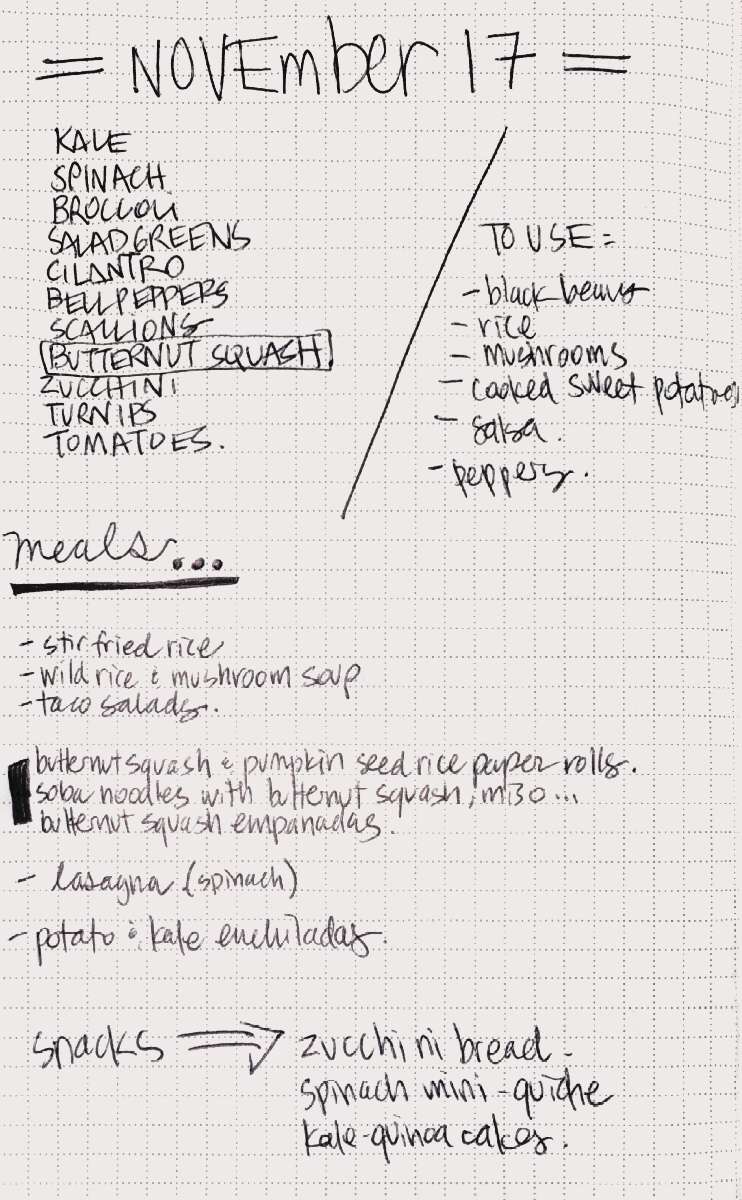 = NOVEmber 17 =
KALE
SPINACH
BROCCOLI
SALAD GREENS
CILANTRO
BELL PEPPERS
SCALLIONS
BUTTERNUT SQUASH
ZUCCHINI
TURNIPS
TOMATOES.
TO USE =
- black beans
- rice
- mushrooms
- cooked sweet potatoes
- salsa.
- peppers.
meals...
- stir fried rice
- wild rice & mushroom soup
- taco salads.
butternut squash & pumpkin seed rice paper rolls.
soba noodles with butternut squash, miso...
butternut squash empanadas.
- lasagna (spinach)
- potato & kale enchiladas.
snacks ⇒ zucchini bread -
spinach mini-quiche
kale-quinoa cakes.